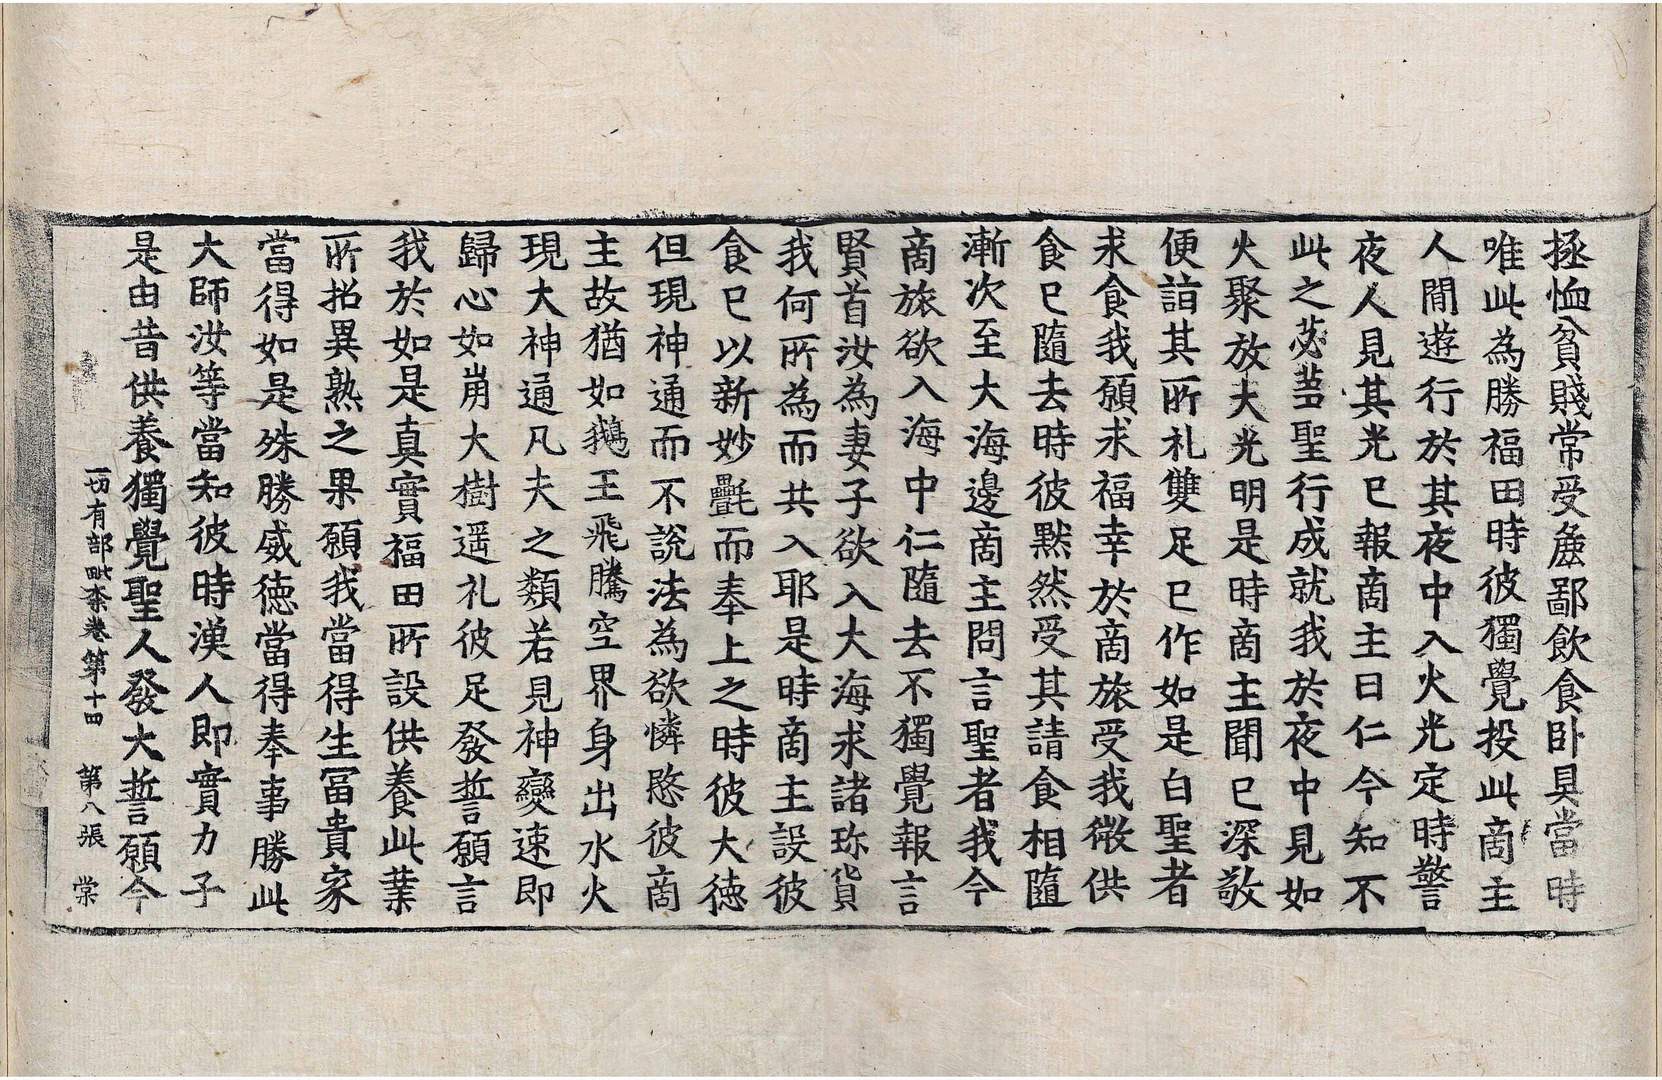 拯恤貧賤常受麁鄙飲食卧具當時
唯此為勝福田時彼獨覺投此商主
人間遊行於其夜中入火光定時警
夜人見其光已報商主曰仁今知不
此之苾蒭聖行成就我於夜中見如
火聚放大光明是時商主聞已深敬
便詣其所礼雙足已作如是白聖者
求食我願求福幸於商旅受我微供
食已隨去時彼黙然受其請食相隨
漸次至大海邊商主問言聖者我今
商旅欲入海中仁隨去不獨覺報言
賢首汝為妻子欲入大海求諸珎貨
我何所為而共入耶是時商主設彼
食已以新妙㲲而奉上之時彼大徳
但現神通而不說法為欲憐愍彼商
主故猶如鵝王飛騰空界身出水火
現大神通凡夫之類若見神變速即
歸心如崩大樹遥礼彼足發誓願言
我於如是真實福田所設供養此業
所招異熟之果願我當得生冨貴家
當得如是殊勝威徳當得奉事勝此
大師汝等當知彼時漢人即實力子
是由昔供養獨覺聖人發大誓願今
一切有部毗柰卷第十四 第八張 棠